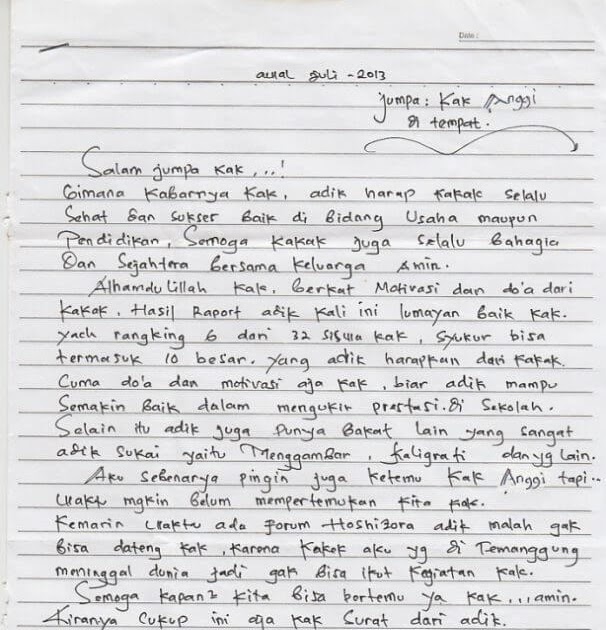 Date :
awal Juli - 2013
jumpa : Kak Anggi
di tempat.
Salam jumpa kak, ...!
Gimana kabarnya kak, adik harap kakak selalu
Sehat dan sukses Baik di Bidang Usaha maupun
Pendidikan, Semoga kakak juga selalu Bahagia
Dan Sejahtera bersama keluarga Amin.
Alhamdulillah kak, Berkat Motivasi dan do'a dari
kakak, Hasil Raport adik kali ini lumayan Baik kak.
yach rangking 6 dari 32 siswa kak, syukur bisa
termasuk 10 besar. yang adik harapkan dari kakak.
Cuma do'a dan motivasi aja kak, biar adik mampu
Semakin Baik dalam mengukir prestasi di Sekolah.
Selain itu adik juga Punya Bakat lain yang sangat
adik sukai yaitu Menggambar, kaligrafi dan yg lain.
Aku sebenarya pingin juga ketemu Kak Anggi tapi..
waktu mgkin Belum mempertemukan kita kak.
Kemarin waktu ada Forum Hoshizora adik malah gak
Bisa dateng kak, karena kakek aku yg di Temanggung
meninggal dunia jadi gak Bisa ikut kegiatan kak.
Semoga kapan2 kita Bisa bertemu ya kak,...amin.
Kiranya Cukup ini aja kak Surat dari adik.